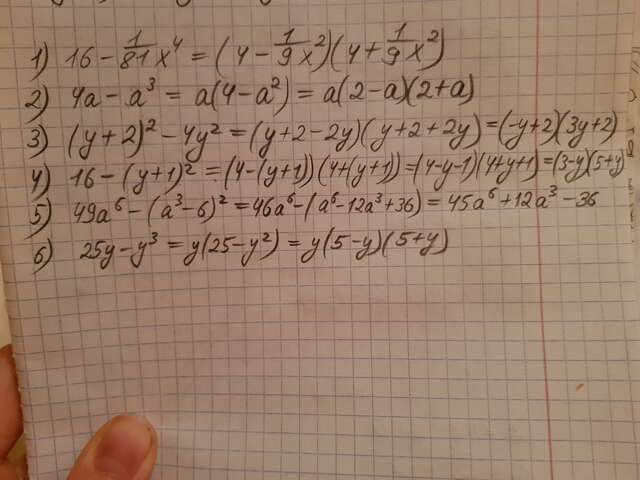 1) 16 - 1/81 x⁴ = (4 - 1/9 x²)(4 + 1/9 x²)
2) 4a - a³ = a(4 - a²) = a(2 - a)(2 + a)
3) (y + 2)² - 4y² = (y + 2 - 2y)(y + 2 + 2y) = (-y + 2)(3y + 2)
4) 16 - (y + 1)² = (4 - (y + 1))(4 + (y + 1)) = (4 - y - 1)(4 + y + 1) = (3 - y)(5 + y)
5) 49a⁶ - (a³ - 6)² = 46a⁶ - (a⁶ - 12a³ + 36) = 45a⁶ + 12a³ - 36
6) 25y - y³ = y(25 - y²) = y(5 - y)(5 + y)